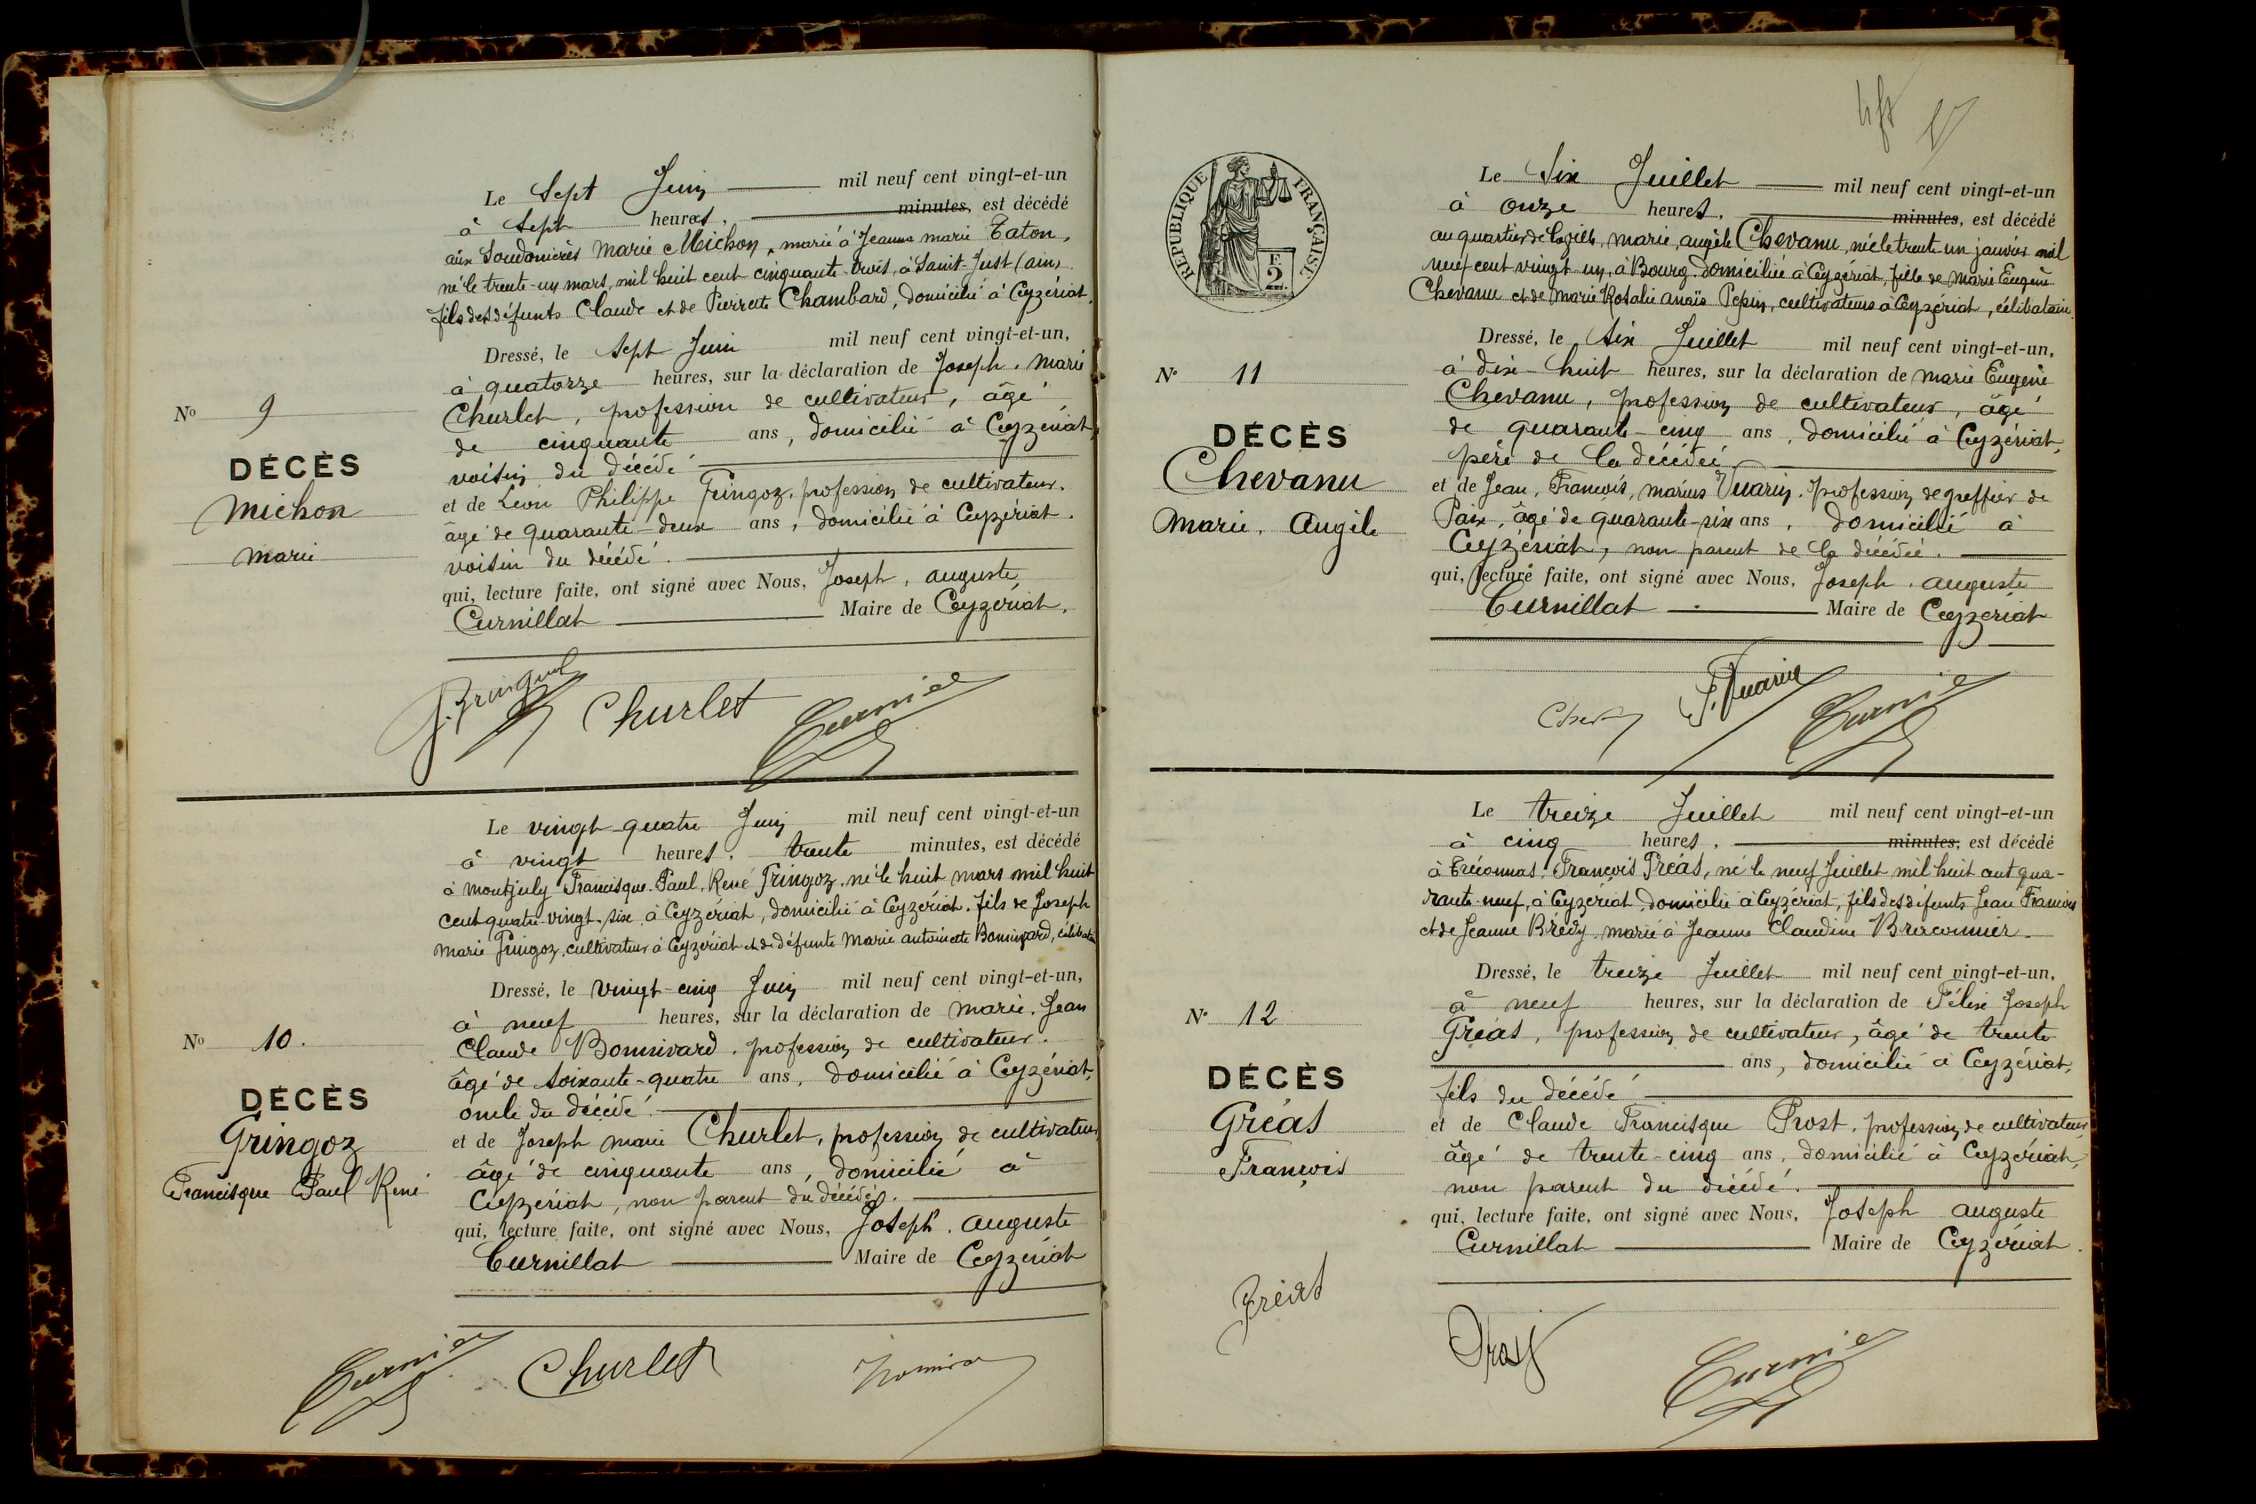 Le Sept Juin mil neuf cent vingt-et-un
à Sept heures, minutes, est décédé
aux Soudanières Marie Michon, marié à Jeanne marie Taton,
né le trente-un mars, mil huit cent cinquante-trois, à Saint-Just (ain),
fils des défunts Claude et de Pierrette Chambard, domicilié à Ceyzériat.
Dressé, le Sept Juin mil neuf cent vingt-et-un,
à quatorze heures, sur la déclaration de Joseph, Marie
Churlet, profession de cultivateur, âgé
de cinquante ans, domicilié à Ceyzériat,
voisin du décédé
et de Léon Philippe Gringoz, profession de cultivateur.
âgé de quarante-deux ans, domicilié à Ceyzériat.
voisin du décédé.
qui, lecture faite, ont signé avec Nous, Joseph, auguste
Curnillat Maire de Ceyzériat.
No 9
DÉCÈS
Michon
Marie
Churlet
Le vingt-quatre Juin mil neuf cent vingt-et-un
à vingt heures, trente minutes, est décédé
à montjuly Francisque, Paul, René Gringoz, né le huit mars mil huit
cent quatre-vingt-six à Ceyzériat, domicilié à Ceyzériat, fils de Joseph
Marie Gringoz, cultivateur à Ceyzériat et de défunte Marie antoinette Bonnivard,
Dressé, le vingt-cinq Juin mil neuf cent vingt-et-un,
à neuf heures, sur la déclaration de Marie, Jean
Claude Bonnivard, profession de cultivateur.
âgé de soixante-quatre ans, domicilié à Ceyzériat,
oncle du décédé.
et de Joseph Marie Churlet, profession de cultivateur,
âgé de cinquante ans, domicilié à
Ceyzériat, non parent du décédé.
qui, lecture faite, ont signé avec Nous, Joseph, auguste
Curnillat Maire de Ceyzériat
No 10.
DÉCÈS
Gringoz
Francisque Paul René
Churlet
RÉPUBLIQUE FRANÇAISE
2
Le Six Juillet mil neuf cent vingt-et-un
à onze heures, minutes, est décédé
au quartier de la ville, Marie, angèle Chevanu, née le trente-un janvier mil
neuf cent vingt-un, à Bourg, domiciliée à Ceyzériat, fille de Marie Eugène
Chevanu et de Marie Rosalie anaïs Pepin, cultivateurs à Ceyzériat, célibataire.
Dressé, le Six Juillet mil neuf cent vingt-et-un,
à dix-huit heures, sur la déclaration de Marie Eugène
Chevanu, profession de cultivateur, âgé
de quarante-cinq ans, domicilié à Ceyzériat,
père de la décédée
et de Jean, François, Marius Vuarin, profession de greffier de
Paix, âgé de quarante-six ans, domicilié à
Ceyzériat, non parent de la décédée.
qui, lecture faite, ont signé avec Nous, Joseph, auguste
Curnillat Maire de Ceyzériat
No 11
DÉCÈS
Chevanu
Marie, Angèle
Le treize Juillet mil neuf cent vingt-et-un
à cinq heures, minutes, est décédé
à Tréconnas, François Gréas, né le neuf Juillet mil huit cent qua-
rante-neuf, à Ceyzériat, domicilié à Ceyzériat, fils des défunts Jean François
et de Jeanne Brédy, marié à Jeanne Claudine Braconnier.
Dressé, le treize Juillet mil neuf cent vingt-et-un,
à neuf heures, sur la déclaration de Félix Joseph
Gréas, profession de cultivateur, âgé de trente
ans, domicilié à Ceyzériat,
fils du décédé
et de Claude Francisque Prost, profession de cultivateur,
âgé de trente-cinq ans, domicilié à Ceyzériat,
non parent du décédé.
qui, lecture faite, ont signé avec Nous, Joseph auguste
Curnillat Maire de Ceyzériat.
No 12
DÉCÈS
Gréas
François
Gréas
Prost